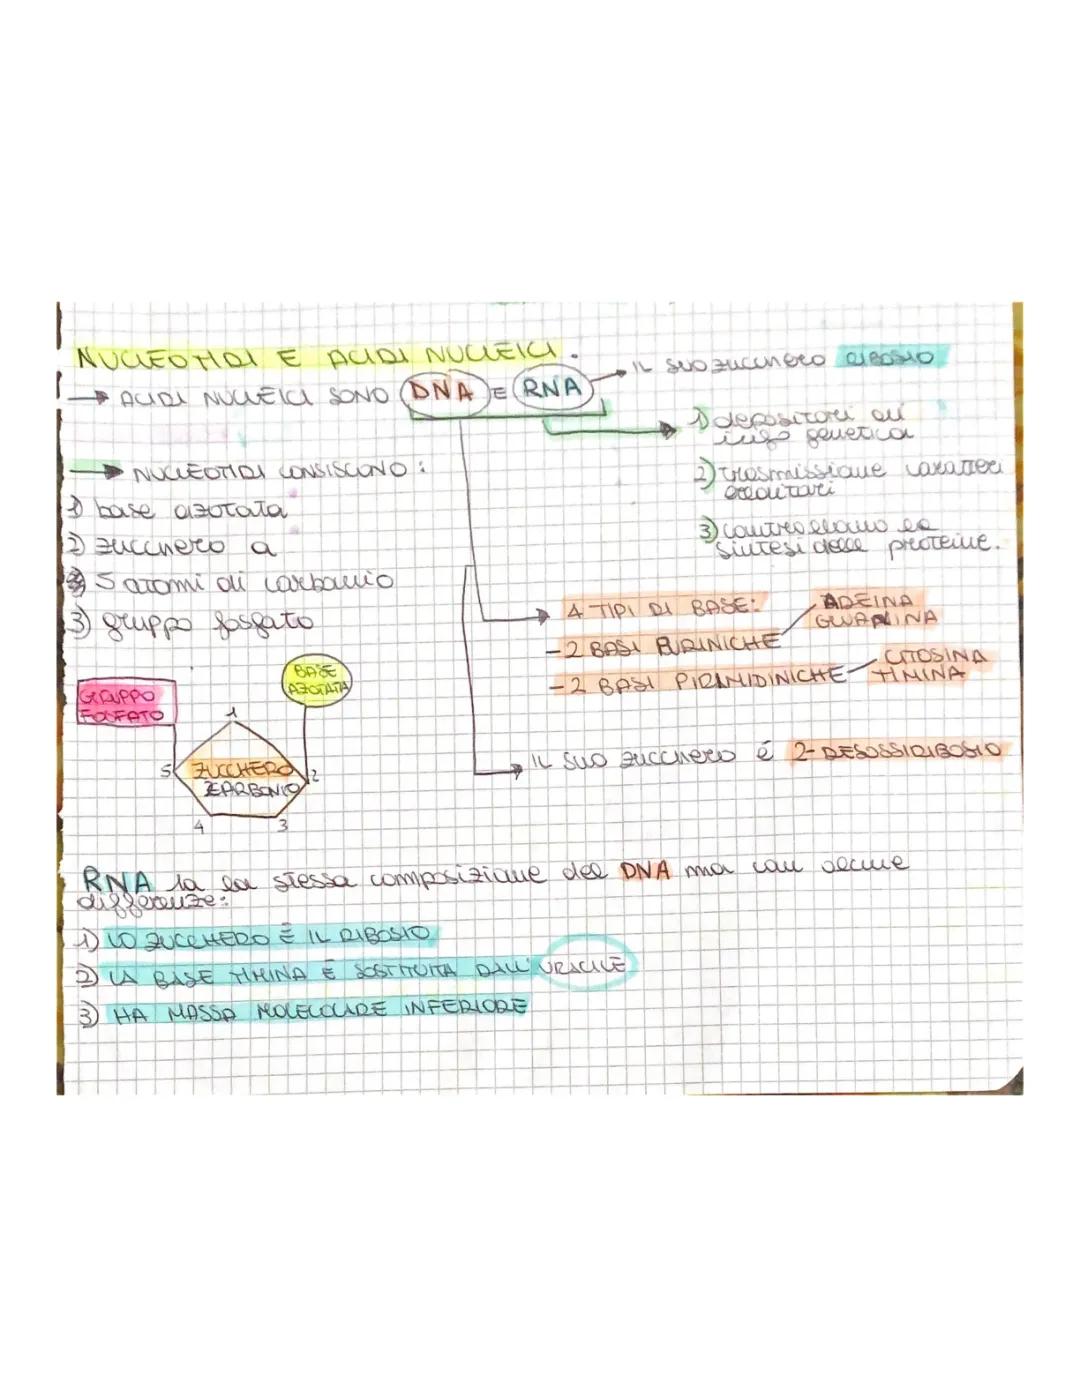 NUCLEOTIDI E ACIDI NUCLEICI.
→ ACIDI NUCLEICI SONO DNA E RNA → IL SUO ZUCCHERO RIBOSIO
1) depositari di
info genetica
2) trasmissione caratteri
ereditari
3) controllano la
sintesi delle proteine.
→ NUCLEOTIDI CONSISCONO:
1) base azotata
2) zucchero a
5 atomi di carbonio
3) gruppo fosfato
4 TIPI DI BASE:
- 2 BASI PURINICHE
ADEINA
GUANINA
- 2 BASI PIRIMIDINICHE
CITOSINA
TIMINA
→ IL SUO ZUCCHERO è 2-DESOSSIRIBOSIO
GRUPPO
FOSFATO
BASE
AZOTATA
1
5 ZUCCHERO 2
CARBONIO
4 3
RNA la stessa composizione del DNA ma con alcune
differenze:
1) LO ZUCCHERO È IL RIBOSIO
2) LA BASE TIMINA È SOSTITUITA DALL'URACILE
3) HA MASSA MOLECOLARE INFERIORE